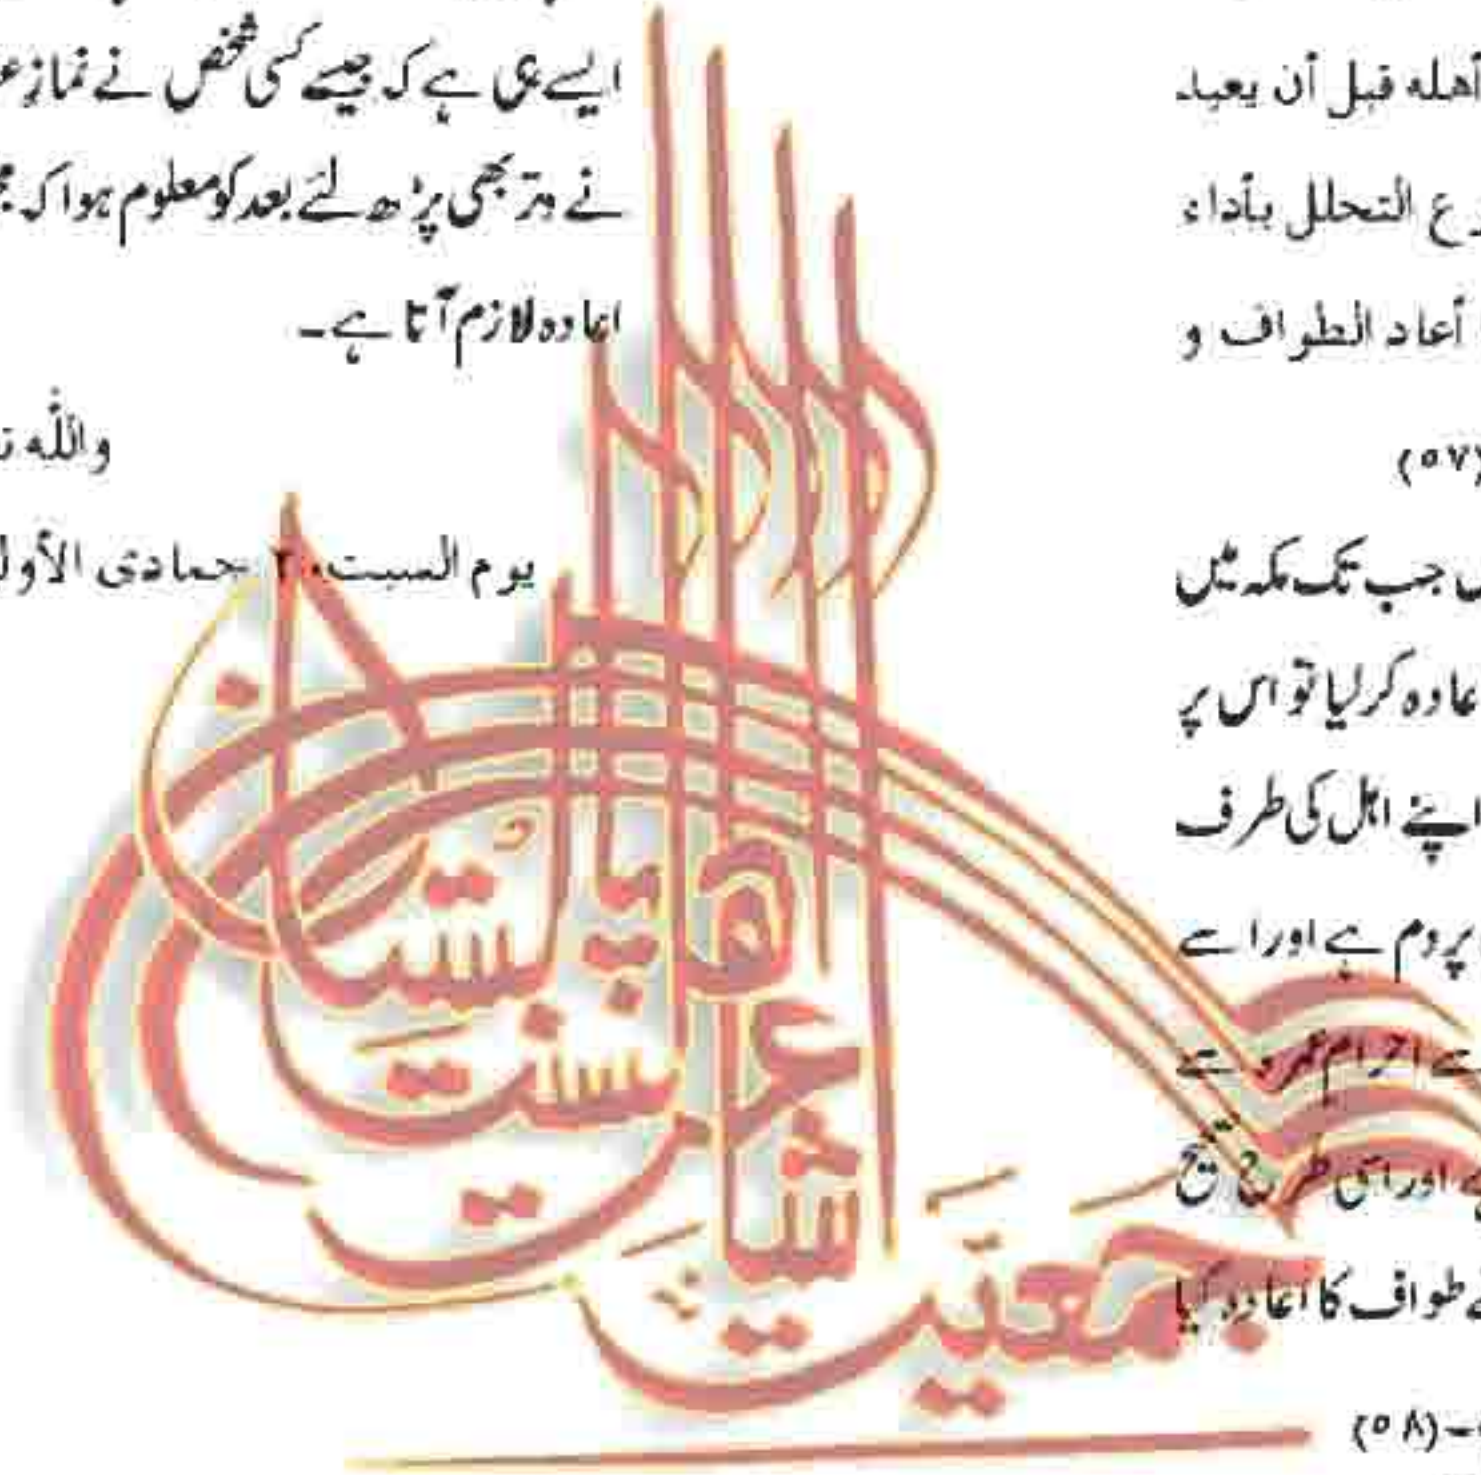 أهله قبل أن يعيد
ع التحلل بأداء
أعاد الطواف و
(٥٧)
جب تک مکہ میں
عادہ کرلیا تو اس پر
اپنے اہل کی طرف
پر دم ہے اور اسے
سے احرام عمرہ سے
اور اسی طرح صحیح
طواف کا اعادہ کیا
(٥٨)-
ایسے ہی ہے کہ جیسے کسی شخص نے نمازِ
نے وتر بھی پڑھ لئے بعد کو معلوم ہوا کہ
اعادہ لازم آتا ہے۔
واللّٰه
يوم السبت، ٢ جمادى الأول
جمعیت
اشاعت
اہلسنت
پاکستان